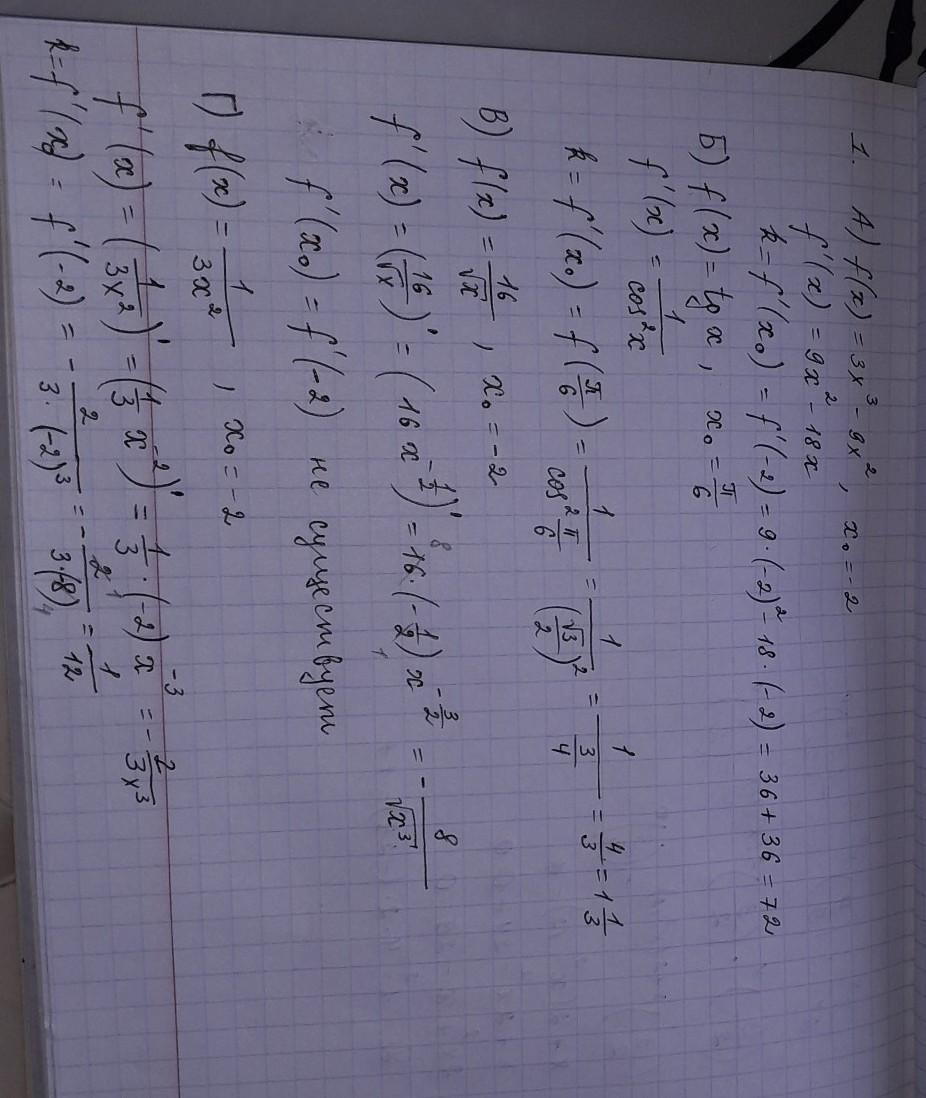 1. А) f(x) = 3x³ - 9x², x₀ = -2
f'(x) = 9x² - 18x
k = f'(x₀) = f'(-2) = 9·(-2)² - 18·(-2) = 36 + 36 = 72
Б) f(x) = tg x, x₀ = π/6
f'(x) = 1/cos²x
k = f'(x₀) = f(π/6) = 1/cos²π/6 = 1/(√3/2)² = 1/(3/4) = 4/3 = 1 1/3
В) f(x) = 16/√x, x₀ = -2
f'(x) = (16/√x)' = (16x^(-1/2))' = 16⁸·(-1/2₁)x^(-3/2) = -8/√x³
f'(x₀) = f'(-2) не существует
Г) f(x) = 1/3x², x₀ = -2
f'(x) = (1/3x²)' = (1/3 x⁻²)' = 1/3·(-2)x⁻³ = -2/3x³
k = f'(x₀) = f'(-2) = -2/3·(-2)³ = -2¹/3·(-8)₄ = 1/12